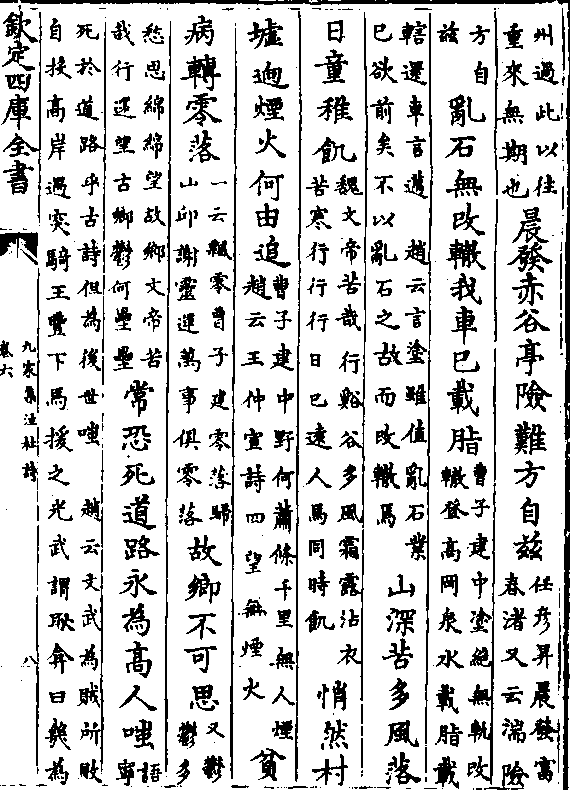 州過此以往
重來無期也
晨發赤谷亭險難方自茲
任彥昇晨發富
春渚又云湍險
方自
茲
亂石無改轍我車已載脂
曹子建中塗絶無軌改
轍登高岡泉水載脂載
舝還車言邁
趙云言塗雖值亂石業
已欲前矣不以亂石之故而改轍焉
山深苦多風落
日童稚飢
魏文帝苦哉行谿谷多風霜露沾衣
苦寒行行行日已遠人馬同時飢
悄然村
墟迥煙火何由追
曹子建中野何蕭條千里無人煙
趙云王仲宣詩四望無煙火
貧
病轉零落
一云飄零曹子建零落歸
山丘謝靈運萬事俱零落
故鄉不可思
又鬱
鬱多
愁思綿綿望故鄉文帝苦
哉行還望古鄉鬱何壘壘
常恐死道路永為高人嗤
語
寧
死於道路乎古詩但為後世嗤
趙云文武為賊所敗
自投高岸遇突騎王豐下馬援之光武謂耿弇曰幾為
欽定四庫全書
九家集注杜詩
卷六
八